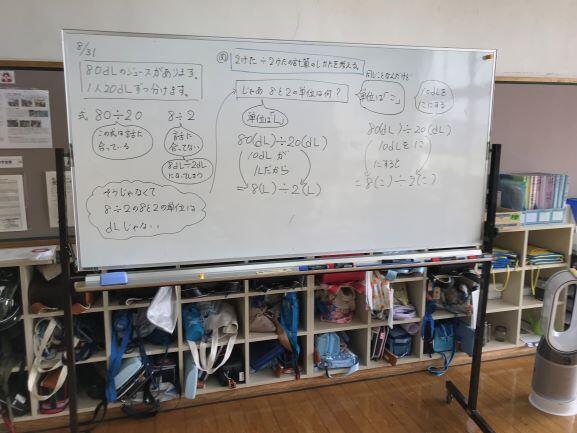 8/31
80dLのジュースがあります。
1人20dLずつ分けます。
式 80÷20
8÷2
この式は話に
合っている
話に
合ってない
8dL÷2dL
になってしまう
そうじゃなくて
8÷2の8と2の単位は
dLじゃない
2けた÷2けたの計算のしかたを考える。
じゃあ 8と2の単位は何？
単位は「L」
80(dL)÷20(dL)
10dLが
1Lだから
=8(L)÷2(L)
同じことなんだけど
単位は「こ」
10dLを
1こにする
80(dL)÷20(dL)
10dLを1こ
にすると
=8(こ)÷2(こ)